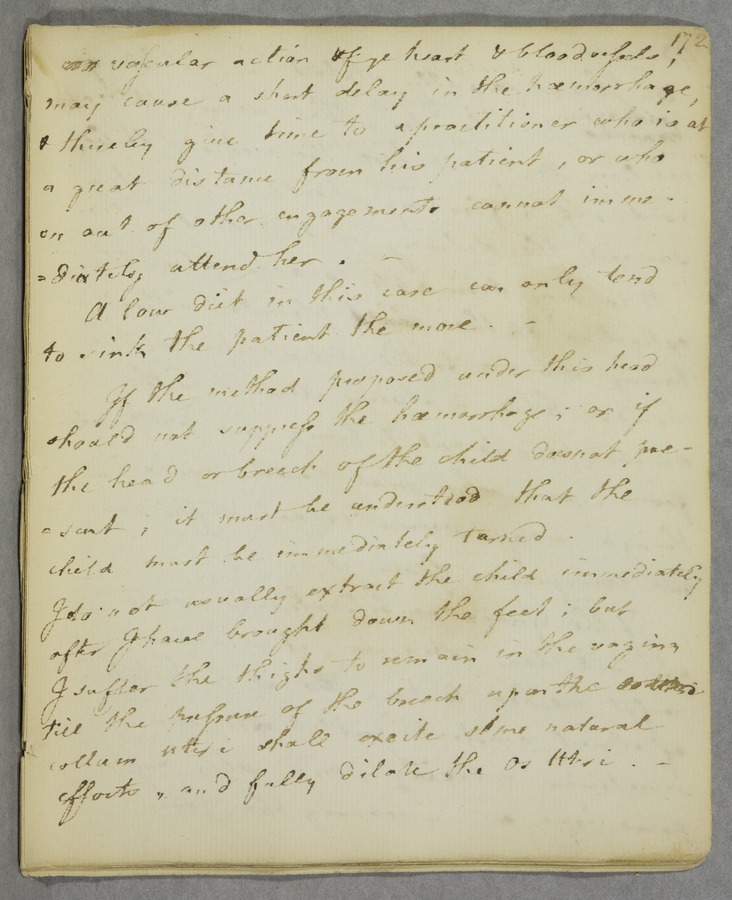 172
vascular action of ye heart & bloodvessels,
may cause a short delay in the hæmorrhage,
& thereby give time to a practitioner who is at
a great distance from his patient, or who
on act. of other engagements cannot imme-
=diately attend her. -
A low diet in this case can only tend
to sink the patient the more. -
If the method proposed under this head
should not suppress the hæmorrhage; or if
the head or breech of the child does not pre-
=sent; it must be understood that the
child must be immediately turned.
I do not usually extract the child immediately
after I have brought down the feet; but
I suffer the thighs to remain in the vagina
till the pressure of the breech upon the
collum uteri shall excite some natural
efforts, and fully dilate the Os Uteri. -